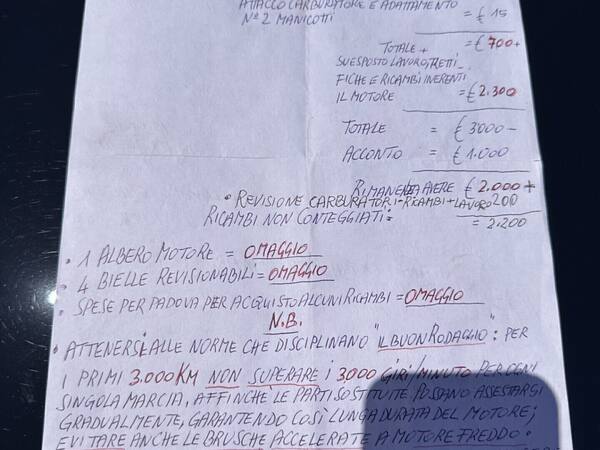 ATTACCO CARBURATORE E ADATTAMENTO
N° 2 MANICOTTI = € 15
TOTALE + = € 700+
SUESPOSTO LAVORO, RETTI-
FICHE E RICAMBI INERENTI
IL MOTORE = € 2.300
TOTALE = € 3000-
ACCONTO = € 1.000
RIMANENZA AVERE € 2.000+
• REVISIONE CARBURATORI-RICAMBI+LAVORO 200
RICAMBI NON CONTEGGIATI: = 2.200
• 1 ALBERO MOTORE = OMAGGIO
• 4 BIELLE REVISIONABILI = OMAGGIO
• SPESE PER PADOVA PER ACQUISTO ALCUNI RICAMBI = OMAGGIO
N.B.
• ATTENERSI ALLE NORME CHE DISCIPLINANO "IL BUON RODAGGIO": PER
I PRIMI 3.000 KM NON SUPERARE I 3000 GIRI/MINUTO PER OGNI
SINGOLA MARCIA, AFFINCHE LE PARTI SOSTITUITE POSSANO ASSESTARSI
GRADUALMENTE, GARANTENDO COSÌ LUNGA DURATA DEL MOTORE;
EVITARE ANCHE LE BRUSCHE ACCELERATE A MOTORE FREDDO.